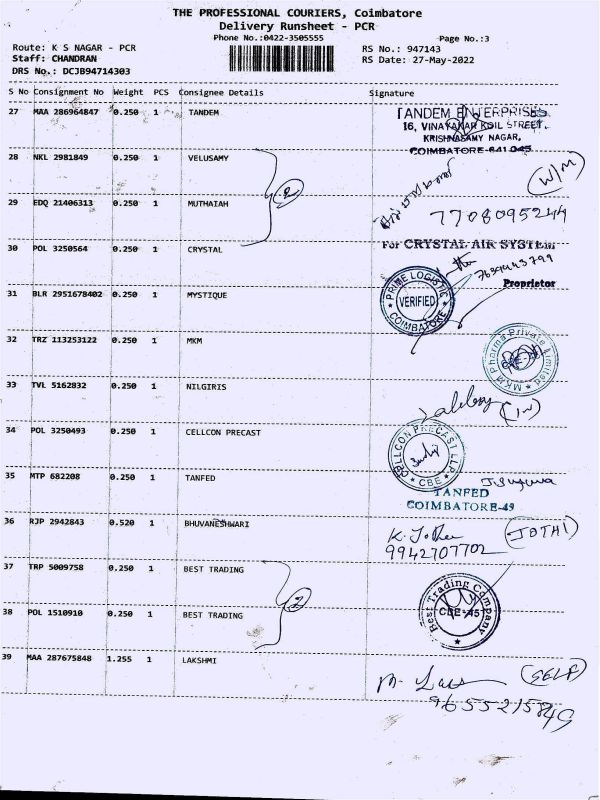 THE PROFESSIONAL COURIERS, Coimbatore
Delivery Runsheet - PCR
Phone No.:0422-3505555
Page No.:3
Route: K S NAGAR - PCR
RS No.: 947143
Staff: CHANDRAN
RS Date: 27-May-2022
DRS No.: DCJB94714303
S No Consignment No Weight PCS Consignee Details Signature
27 MAA 286964847 0.250 1 TANDEM
TANDEM ENTERPRISES
16, VINAYAKAR KOIL STREET,
KRISHNASAMY NAGAR,
COIMBATORE-641 045
28 NKL 2981849 0.250 1 VELUSAMY
2
W/M
29 EDQ 21406313 0.250 1 MUTHAIAH
7708095244
30 POL 3250564 0.250 1 CRYSTAL
For CRYSTAL AIR SYSTEM
Proprietor
31 BLR 2951678402 0.250 1 MYSTIQUE
PRIME LOGISTIC
VERIFIED
COIMBATORE
32 TRZ 113253122 0.250 1 MKM
MKM Pharma Private Limited
33 TVL 5162832 0.250 1 NILGIRIS
34 POL 3250493 0.250 1 CELLCON PRECAST
CELLCON PRECAST LLP
CBE
35 MTP 682208 0.250 1 TANFED
TANFED
COIMBATORE-45
36 RJP 2942843 0.520 1 BHUVANESHWARI
(JOTHI)
9942707702
37 TRP 5009758 0.250 1 BEST TRADING
2
Best Trading Company
CBE-45
38 POL 1510910 0.250 1 BEST TRADING
39 MAA 287675848 1.255 1 LAKSHMI
(SELF)
9655215849